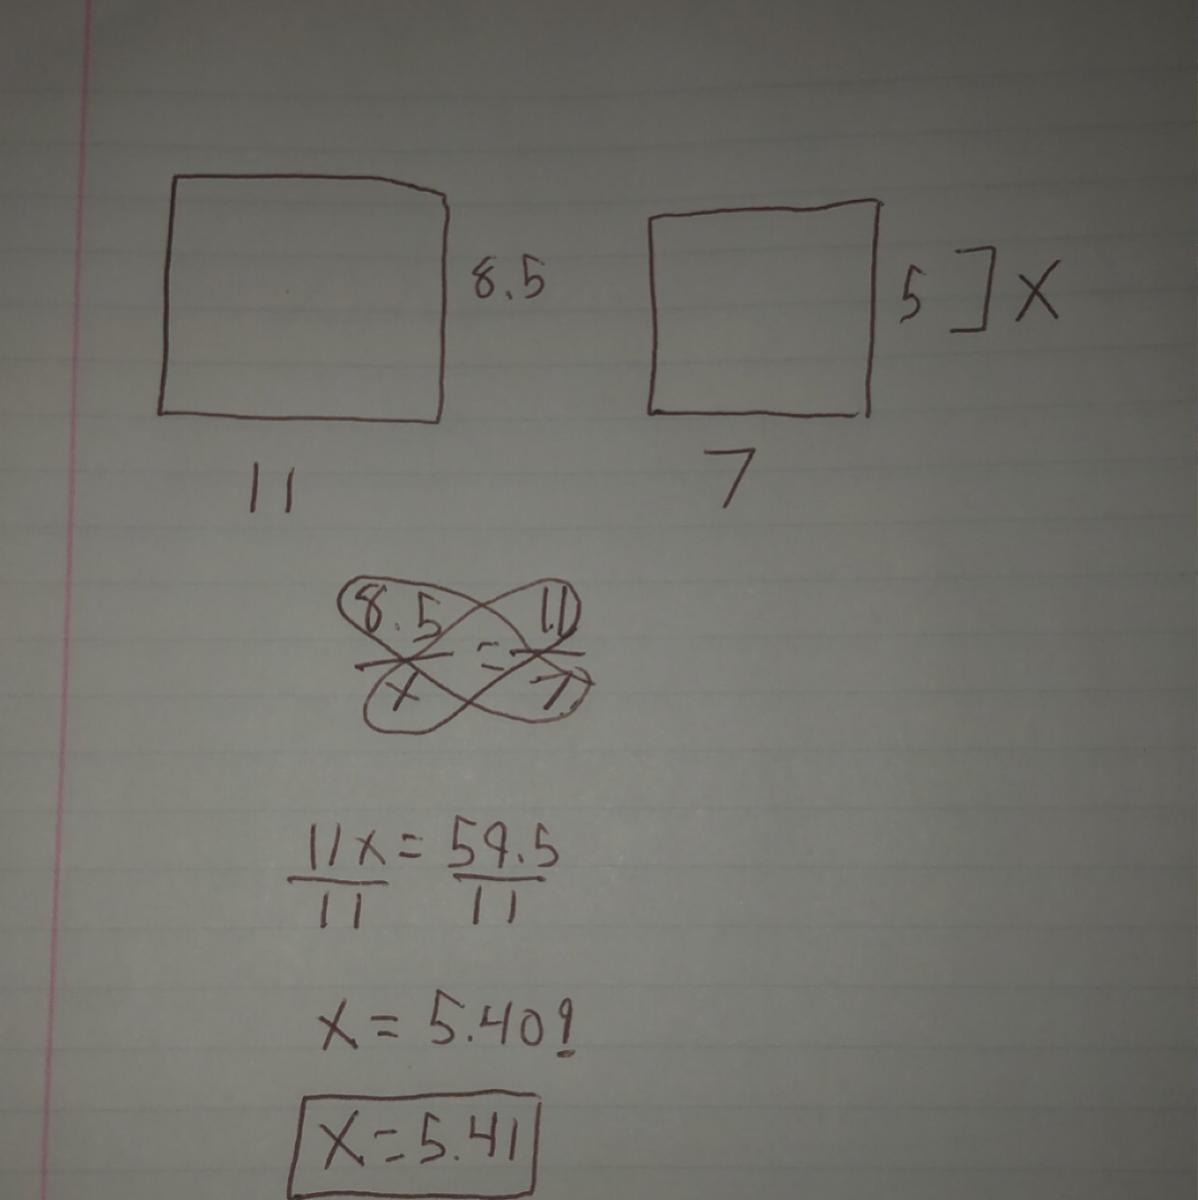 8.5
5 ] X
11
7
8.5 = 11
x 7
11x = 59.5
11 11
x = 5.409
x = 5.41